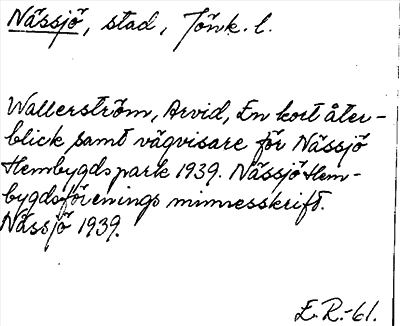 Nässjö, stad, Jönk. l.
Wallerström, Arvid, En kort åter-
blick samt vägvisare för Nässjö
Hembygdspark 1939. Nässjö Hem-
bygdsförenings minnesskrift.
Nässjö 1939.
E.R.-61.